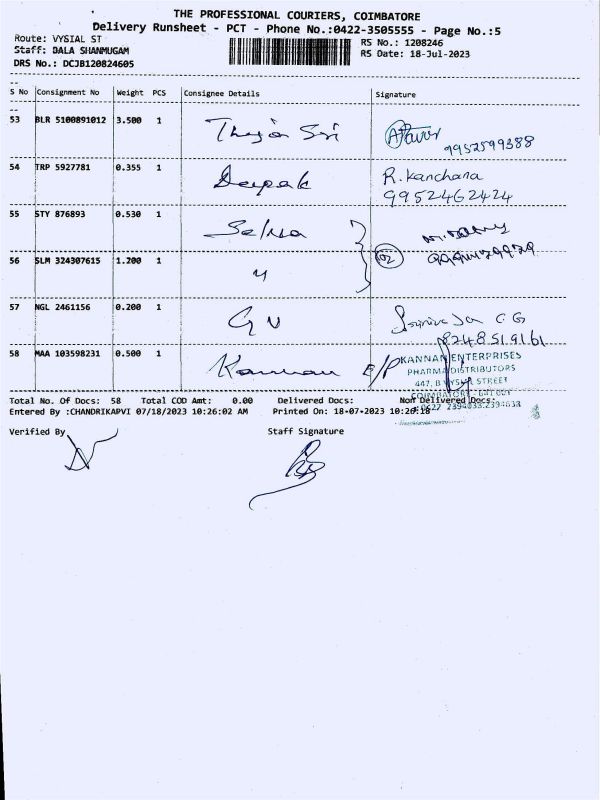 THE PROFESSIONAL COURIERS, COIMBATORE
Delivery Runsheet - PCT - Phone No.:0422-3505555 - Page No.:5
Route: VYSIAL ST
RS No.: 1208246
Staff: DALA SHANMUGAM
RS Date: 18-Jul-2023
DRS No.: DCJB120824605
S No Consignment No Weight PCS Consignee Details Signature
53 BLR 5100891012 3.500 1
9952599388
54 TRP 5927781 0.355 1 Deepak R. Kanchana
9952462424
55 STY 876893 0.530 1 Selva
56 SLM 324307615 1.200 1 "
57 NGL 2461156 0.200 1 G V
8248519161
58 MAA 103598231 0.500 1 Kannan E/P
KANNAN ENTERPRISES
PHARMA DISTRIBUTORS
447, B VYSIAL STREET
Total No. Of Docs: 58 Total COD Amt: 0.00 Delivered Docs: Non Delivered Docs:
Entered By :CHANDRIKAPVI 07/18/2023 10:26:02 AM Printed On: 18-07-2023 10:26:18
Verified By Staff Signature